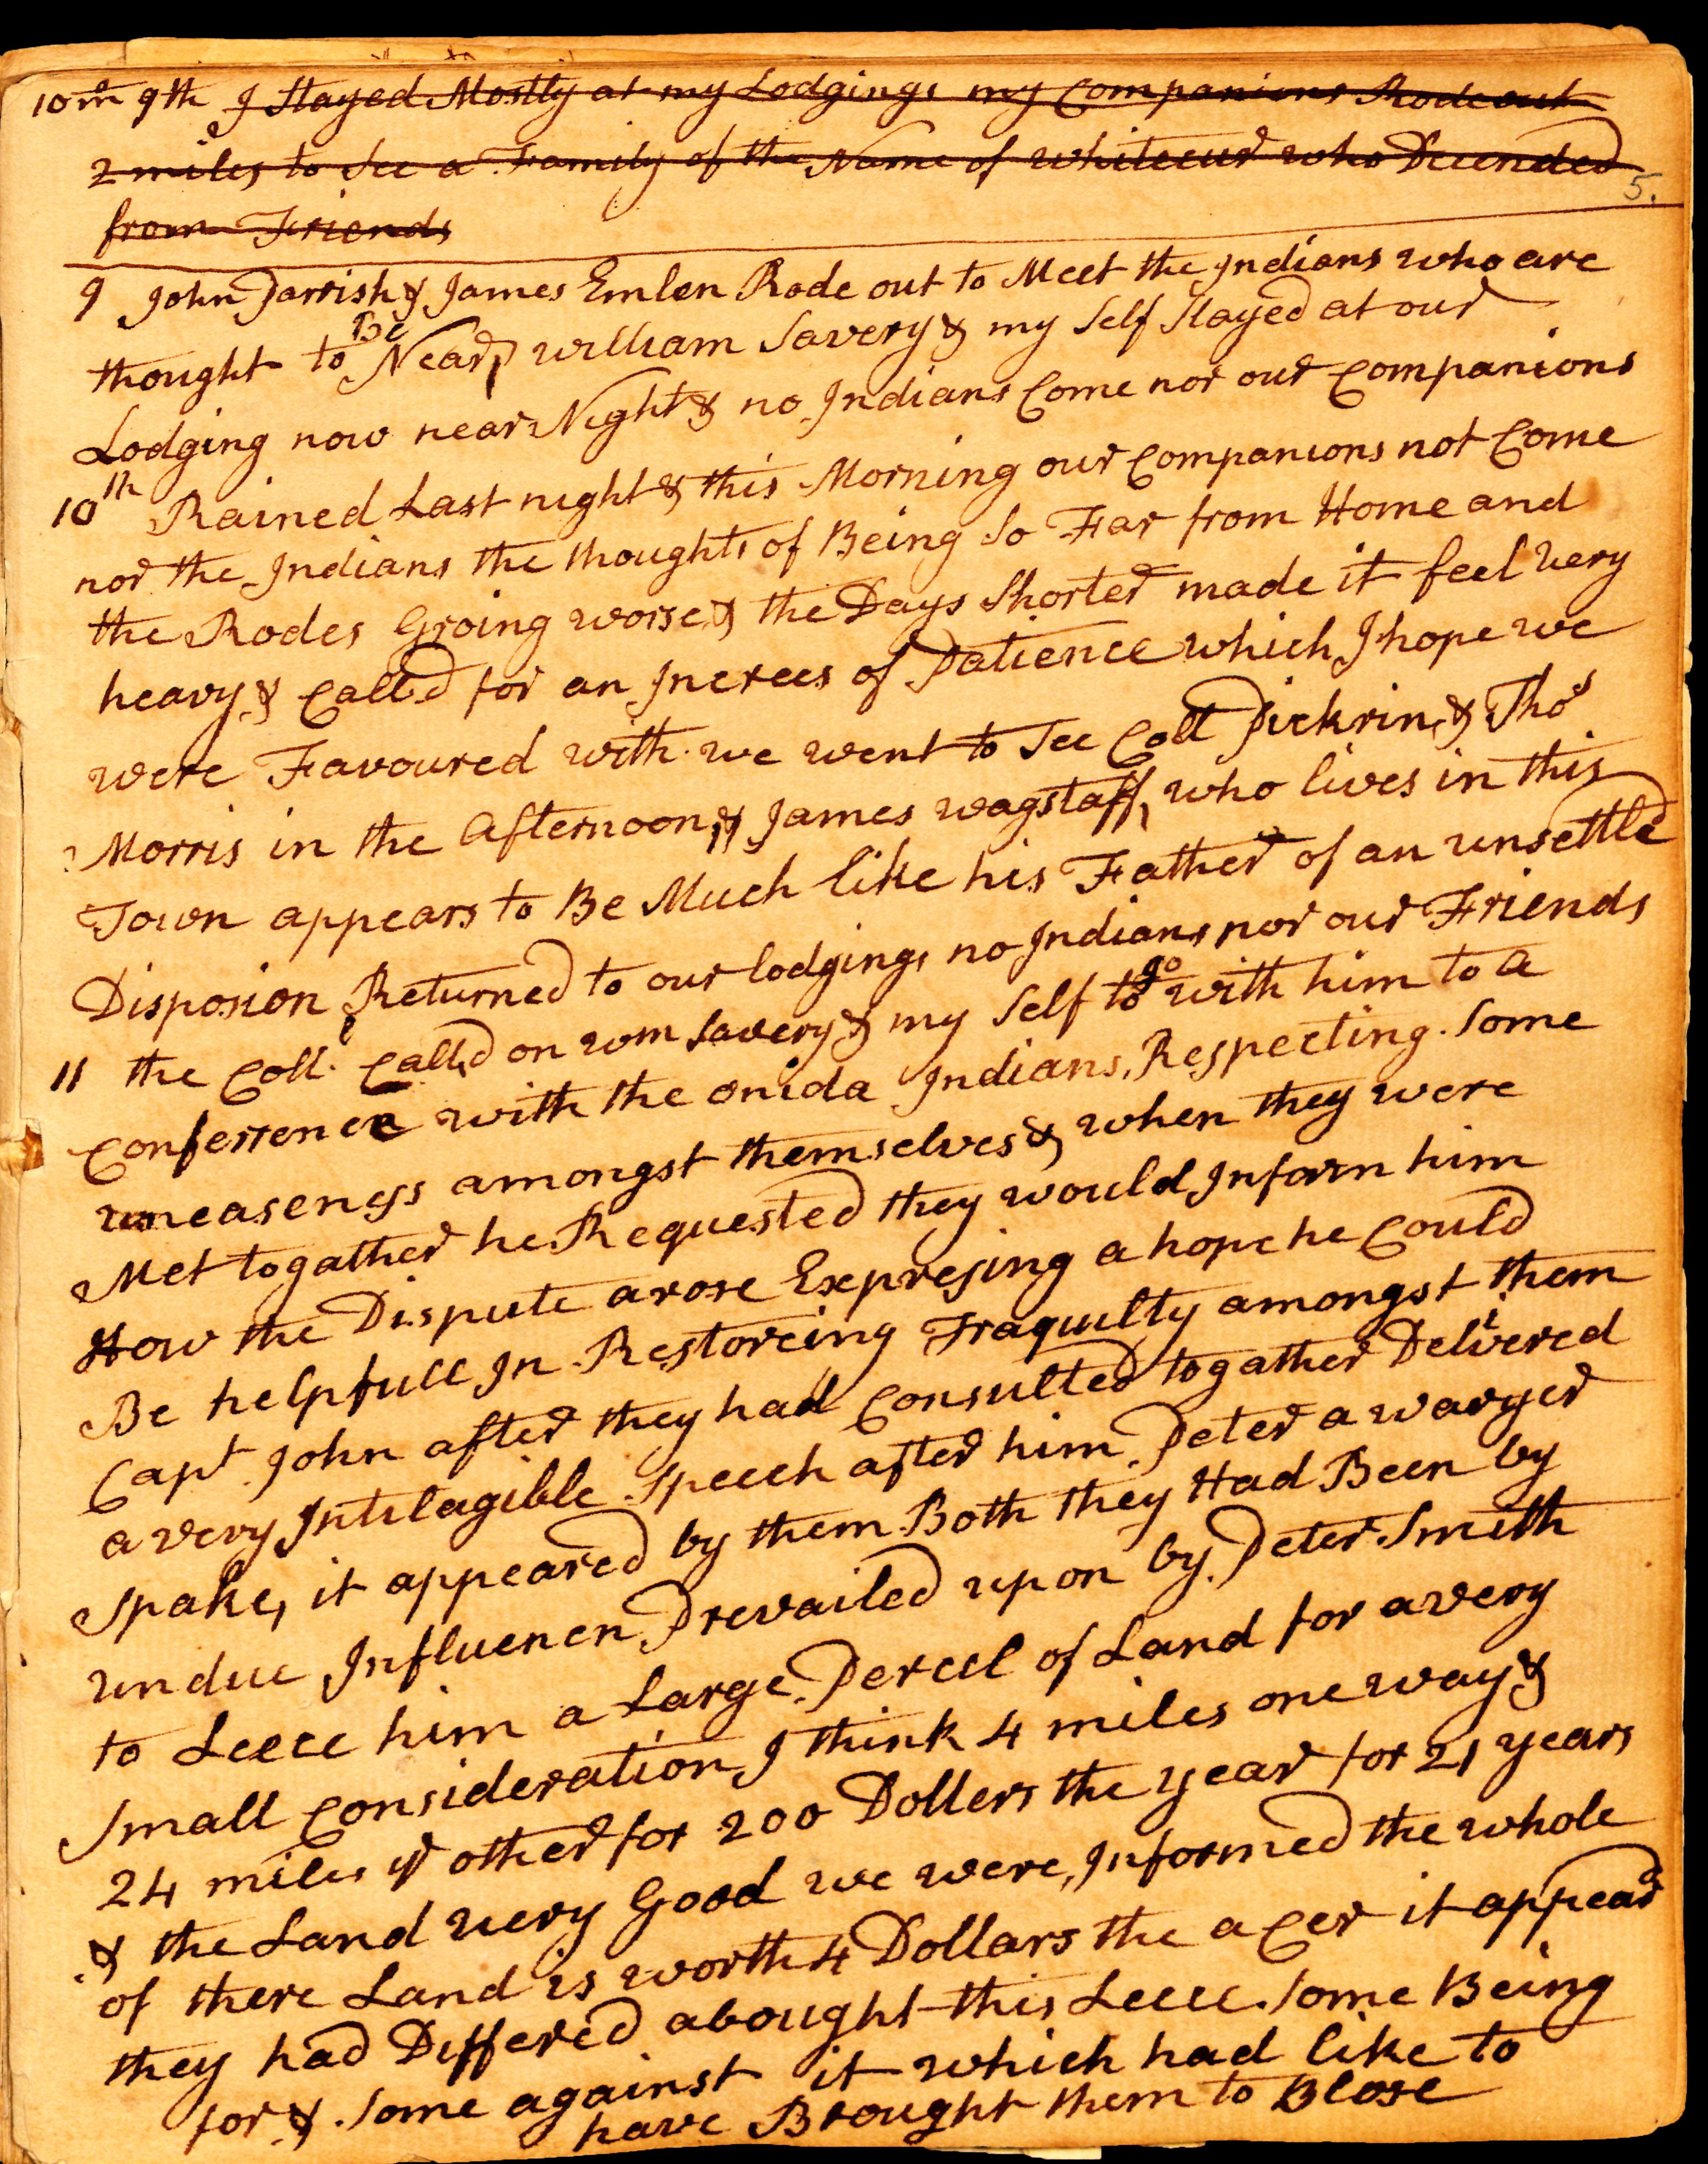 10m 9th I Stayed Mostly at my Lodgings my Companions Rode out
2 miles to See a Family of the Name of Whitecur who Decended
from Friends
5.
9 John Parrish & James Emlen Rode out to Meet the Indians who are
thought to Be Near, William Savery & my Self Stayed at our
Lodging now near Night & no Indians Come nor our Companions
10th Rained Last night & this Morning our Companions not Come
nor the Indians the thoughts of Being So Far from Home and
the Rodes Groing worse & the Days Shorter made it feel very
heavy & Called for an Increes of Patience which I hope we
were Favoured with we went to See Coll Pickrin & Thos
Morris in the Afternoon, & James Wagstaff, who lives in this
Town appears to Be Much like his Father of an unsettled
Disposion Returned to our lodgings no Indians nor our Friends
11 the Coll. Called on Wm Savery & my Self to go with him to a
Conferrence with the Onida Indians, Respecting Some
uneaseness amongst themselves & when they were
Met togather he Requested they would Inform him
How the Dispute arose Expresing a hope he Could
Be helpfull In Restoreing Traquilty amongst them
Capt John after they had Consulted togather Delivered
a very Intilagible Speech after him Peter a waryer
Spake, it appeared by them Both they Had Been by
undue Influencen Prevailed upon by Peter Smith
to Leece him a Large Percel of Land for a very
Small Consideration I think 4 miles one way &
24 miles ye other for 200 Dollers the year for 21 years
& the Land very Good we were, Informed the whole
of there Land is worth 4 Dollars the acer it appear
they had Differed abought this Leece Some Being
for & Some against it which had like to
have Brought them to Blose